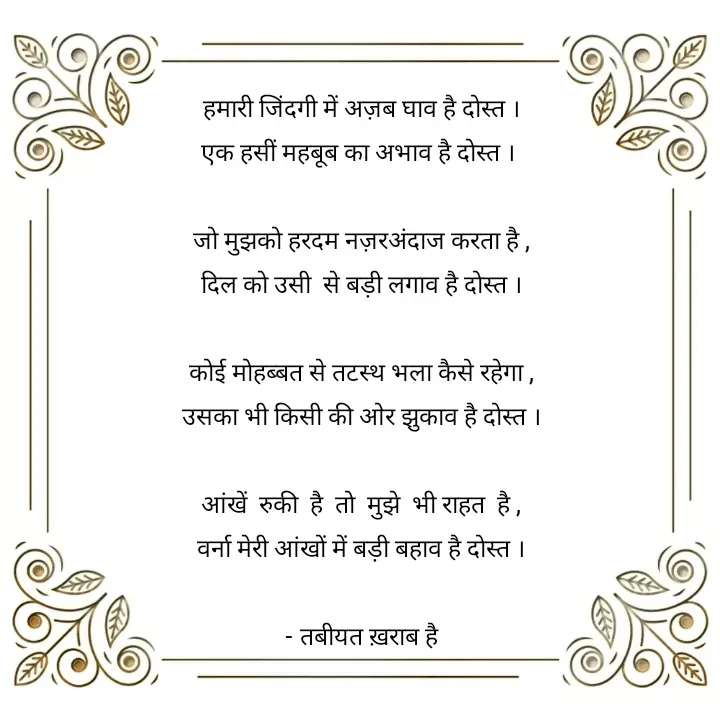 हमारी जिंदगी में अज़ब घाव है दोस्त ।
एक हसीं महबूब का अभाव है दोस्त ।
जो मुझको हरदम नज़रअंदाज करता है ,
दिल को उसी से बड़ी लगाव है दोस्त ।
कोई मोहब्बत से तटस्थ भला कैसे रहेगा ,
उसका भी किसी की ओर झुकाव है दोस्त ।
आंखें रुकी है तो मुझे भी राहत है ,
वर्ना मेरी आंखों में बड़ी बहाव है दोस्त ।
- तबीयत ख़राब है